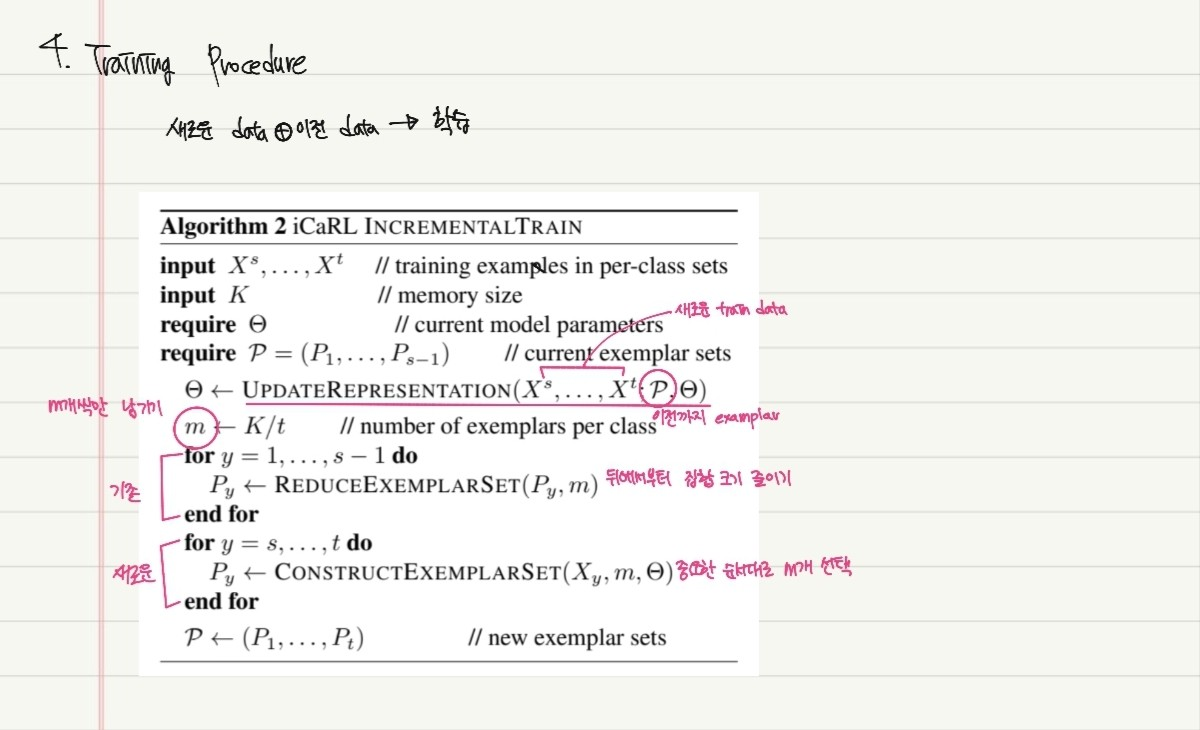 4. Training Procedure
새로운 data ⊕ 이전 data → 학습
Algorithm 2 iCaRL INCREMENTALTRAIN
input X^s, . . . , X^t // training examples in per-class sets
input K // memory size
새로운 train data
require Θ // current model parameters
require P = (P_1, . . . , P_{s−1}) // current exemplar sets
Θ ← UPDATEREPRESENTATION(X^s, . . . , X^t; P, Θ)
m개씩만 남기기
이전까지 examplar
m ← K/t // number of exemplars per class
기존
for y = 1, . . . , s − 1 do
P_y ← REDUCEEXEMPLARSET(P_y, m) 뒤에서부터 집합 크기 줄이기
end for
새로운
for y = s, . . . , t do
P_y ← CONSTRUCTEXEMPLARSET(X_y, m, Θ) 중요한 순서대로 m개 선택
end for
P ← (P_1, . . . , P_t) // new exemplar sets